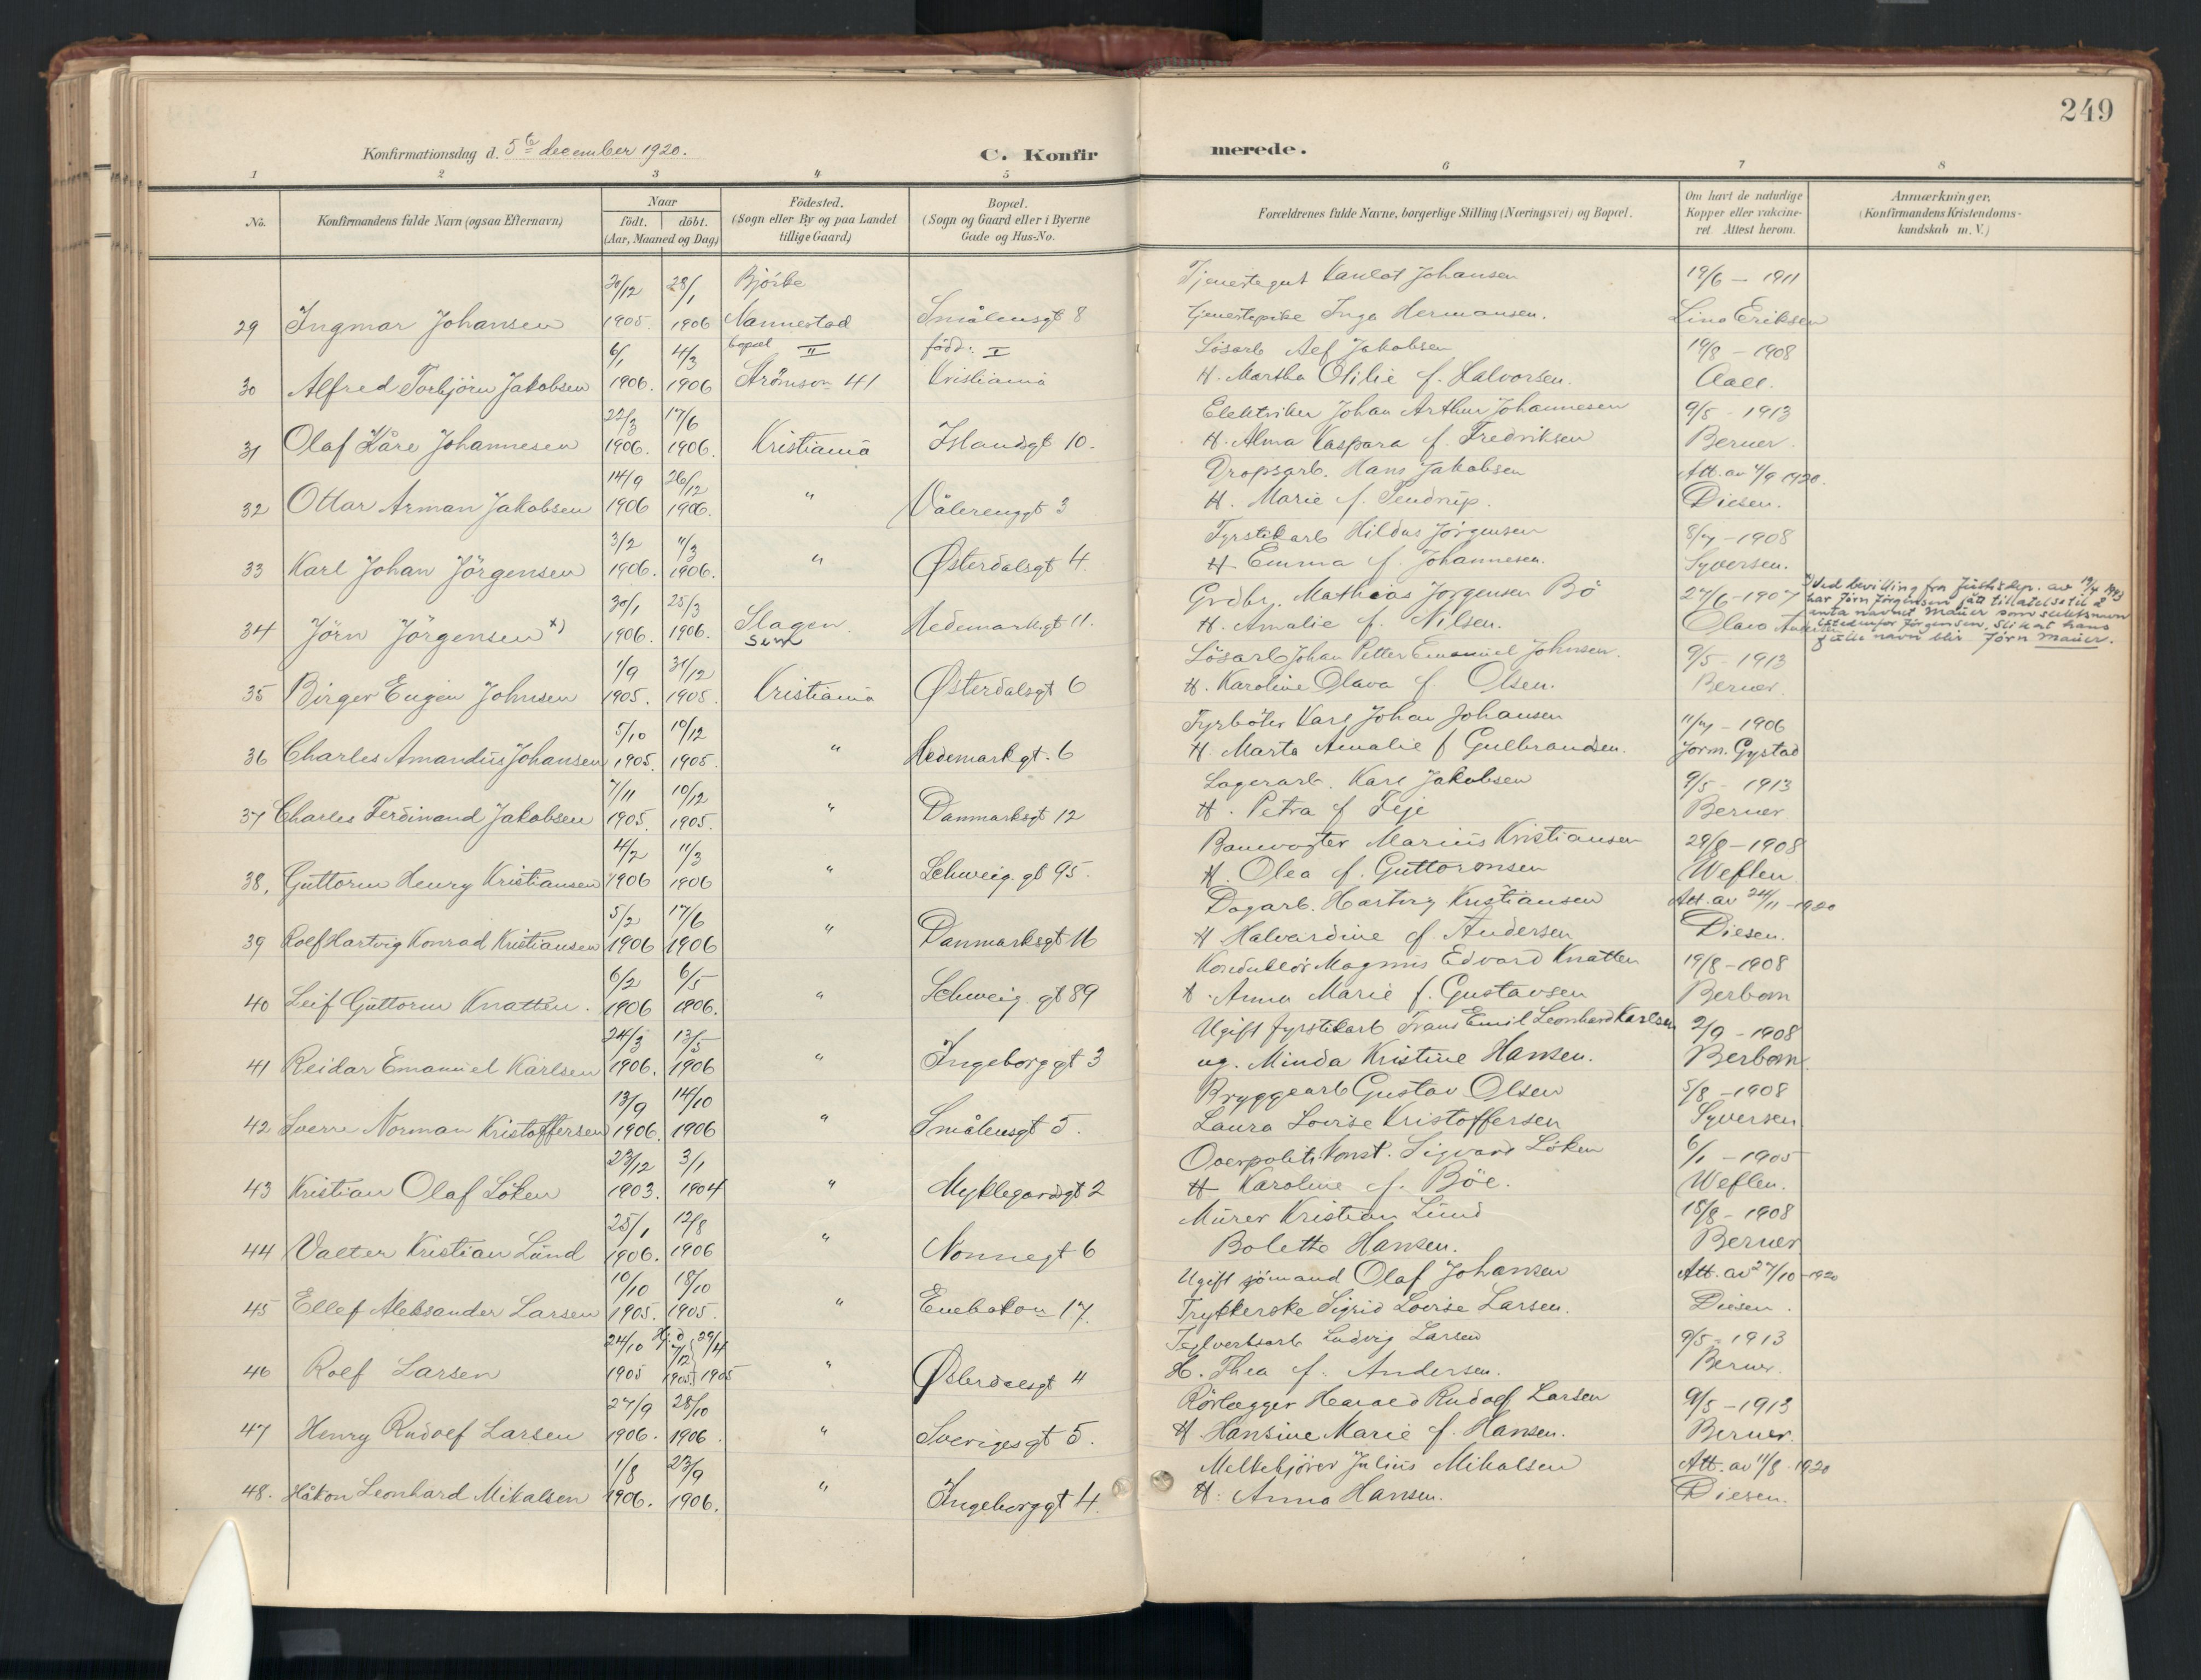 249
Konfirmationsdag d. 5te december 1920.
C. Konfirmerede.
1 2 3 4 5 6 7 8
No.
Konfirmandens fulde Navn (ogsaa Efternavn)
Naar
födt. döbt.
(Aar, Maaned og Dag)
Födested.
(Sogn eller By og paa Landet
tillige Gaard)
Bopæl.
(Sogn og Gaard eller i Byerne
Gade og Hus-No.
Forældrenes fulde Navne, borgerlige Stilling (Næringsvei) og Bopæl.
Om havt de naturlige
Kopper eller vakcine-
ret. Attest herom.
Anmærkninger,
(Konfirmandens Kristendoms-
kundskab m. V.)
28/1 Bjørke Tjenestegut Johansen 19/6 - 1911
29 Ingmar Johansen 1905. 1906 Nannestad Smålensgt 8 tjenestepike Inga Hermansen. Lina Eriksen
6/1 4/3 bopæl II född: I Løsarb Jakobsen 19/8 - 1908
30 Alfred Torbjörn Jakobsen 1906. 1906 Strömsvn 41 Kristiania H. Martha Otilie f. Halvorsen. Aall.
22/3 17/6 Elektriker Johan Arthur Johannesen 9/5 - 1913
31 Olaf Kåre Johannesen 1906. 1906. Kristiania Islandsgt 10. H. Alma Kaspara f. Fredriksen Berner.
14/9 26/12 Dropsarb. Hans Jakobsen Att. av 4/9 1920.
32 Ottar Arman Jakobsen 1906 1906. " Vålerenggt 3 H. Marie f. Tendrup. Diesen.
3/2 11/3 Fyrstikarb Hildus Jörgensen 8/7 - 1908
33 Karl Johan Jörgensen 1906. 1906. " Østerdalsgt 4. H Emma f. Johannesen. Syversen.
30/1 25/3 Grdbr. Mathias Jorgensen Bö 27/6 - 1907
x) Ved bevilling fra Justisdep. av
har Jörn Jörgensen fått tillatelse til å
anta navnet Mauer som slektsnavn
istedenfor Jørgensen, slik at hans
fulle navn blir Jørn Mauer.
34 Jörn Jörgensen x) 1906. 1906. Slagen. Hedemarksgt 11. H. Amalie f. Nilsen. Olava Andersen
Sem
1/9 31/12 Lösarb Johan Petter Emanuel Johnsen. 9/5 - 1913
35 Birger Eugen Johnsen 1905. 1905. Kristiania Østerdalsgt 6 H. Karoline Olava f. Olsen. Berner.
5/10 10/12 Fyrböter Karl Johan Johansen 11/7 - 1906
36 Charles Amandus Johansen 1905. 1905. " Hedemarkgt. 6 H. Marta Amalie f Gulbrandsen. Jorm. Gystad
7/11 10/12 Lagerarb. Karl Jakobsen 9/5 - 1913
37 Charles Ferdinand Jakobsen 1905. 1905. " Danmarksgt 12 H. Petra f Feje Berner
4/2 11/3 Banevogter Marius Kristiansen 29/8 - 1908
38, Guttorm Henry Kristiansen 1906 1906 " Schweig. gt 95. H. Olea f. Guttormsen Weflen
5/2 17/6 Dagarb. Hartvig Kristiansen Att. av 24/11 - 1920
39 Rolf Hartvig Konrad Kristiansen 1906 1906 " Danmarksgt 16 H Halvardine f. Andersen Diesen.
6/2 6/5 Konduktör Magnus Edvard Knatten 19/8 - 1908
40 Leif Guttorm Knatten. 1906 1906. " Schweig. gt 89 H. Anna Marie f. Gustavsen Berbom
24/3 13/5 Ugift fyrstikarb Frans Emil Leonhard Karlsen 2/9 - 1908
41 Reidar Emanuel Karlsen 1906. 1906 " Ingeborggt 3 ug. Minda Kristine Hansen. Berbom
13/9 14/10 Bryggearb Gustav Olsen 5/8 - 1908
42 Sverre Norman Kristoffersen 1906. 1906 " Smålensgt 5. Laura Lovise Kristoffersen Syversen
23/12 3/1 Overpolitikonst. Sigvard Löken 6/1 - 1905
43 Kristian Olaf Löken 1903. 1904 " Myklegardsgt 2 H Karoline f. Böe. Weflen.
25/1 12/8 Murer Kristian Lund 18/8 - 1908
44 Valter Kristian Lund 1906. 1906 " Nonnegt 6 Bolette Hansen. Berner
10/10 18/10 Ugift sjömand Olaf Johansen Att. av 27/10 - 1920
45 Ellef Aleksander Larsen 1905. 1905. " Enebakvn 17. Trykkerske Sigrid Lovise Larsen. Diesen.
24/10 Hj. d 7/12 29/4 Teglverksarb Ludvig Larsen 9/5 - 1913
46 Rolf Larsen 1905 1905 1905 " Østerdalsgt 4 H. Thea f. Andersen. Berner.
27/9 28/10 Rörlægger Harald Rudolf Larsen 9/5 - 1913
47 Henry Rudolf Larsen 1906. 1906. " Sverigesgt 5. H Hansine Marie f. Hansen. Berner.
1/8 23/9 Melkekjörer Julius Mikalsen Att. av 11/8 - 1920
48. Håkon Leonhard Mikalsen 1906. 1906. " Ingeborggt 4. H. Anna Hansen. Diesen.